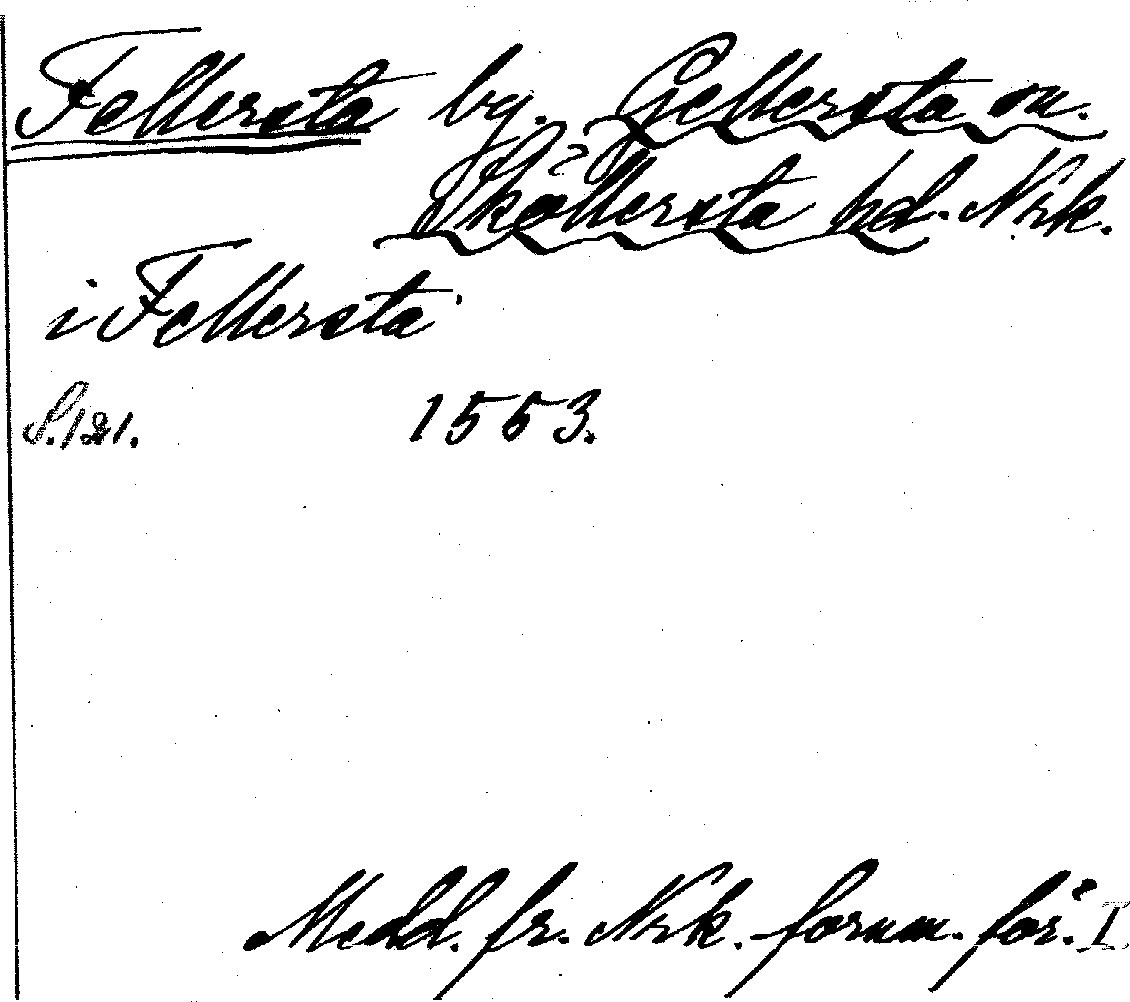 Fellersta by. Gellersta sn.
Sköllersta hd. Nrk.
i Fellersta
S. 121. 1553.
Medd. fr. Nrk. fornm. för. I.